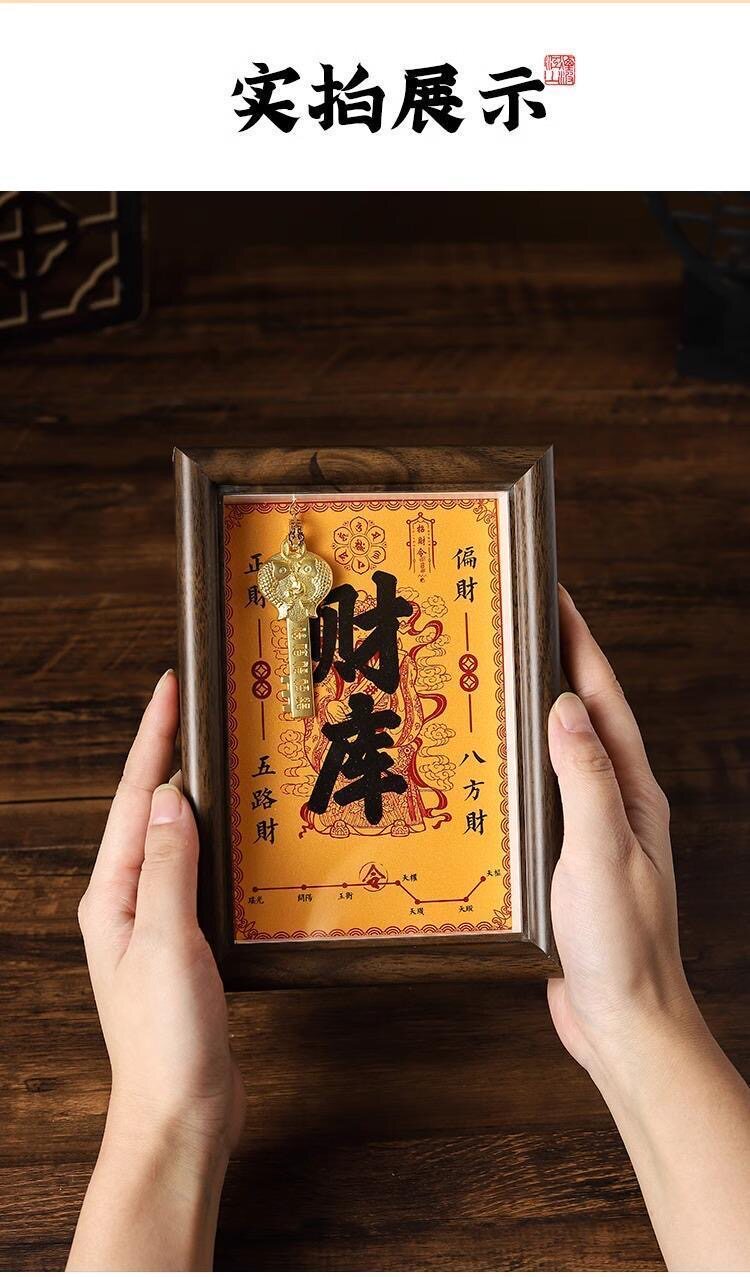 实拍展示
招財令
正財
偏財
财库
五路財
八方財
令
瑤光
開陽
玉衡
天權
天璣
天璇
天樞